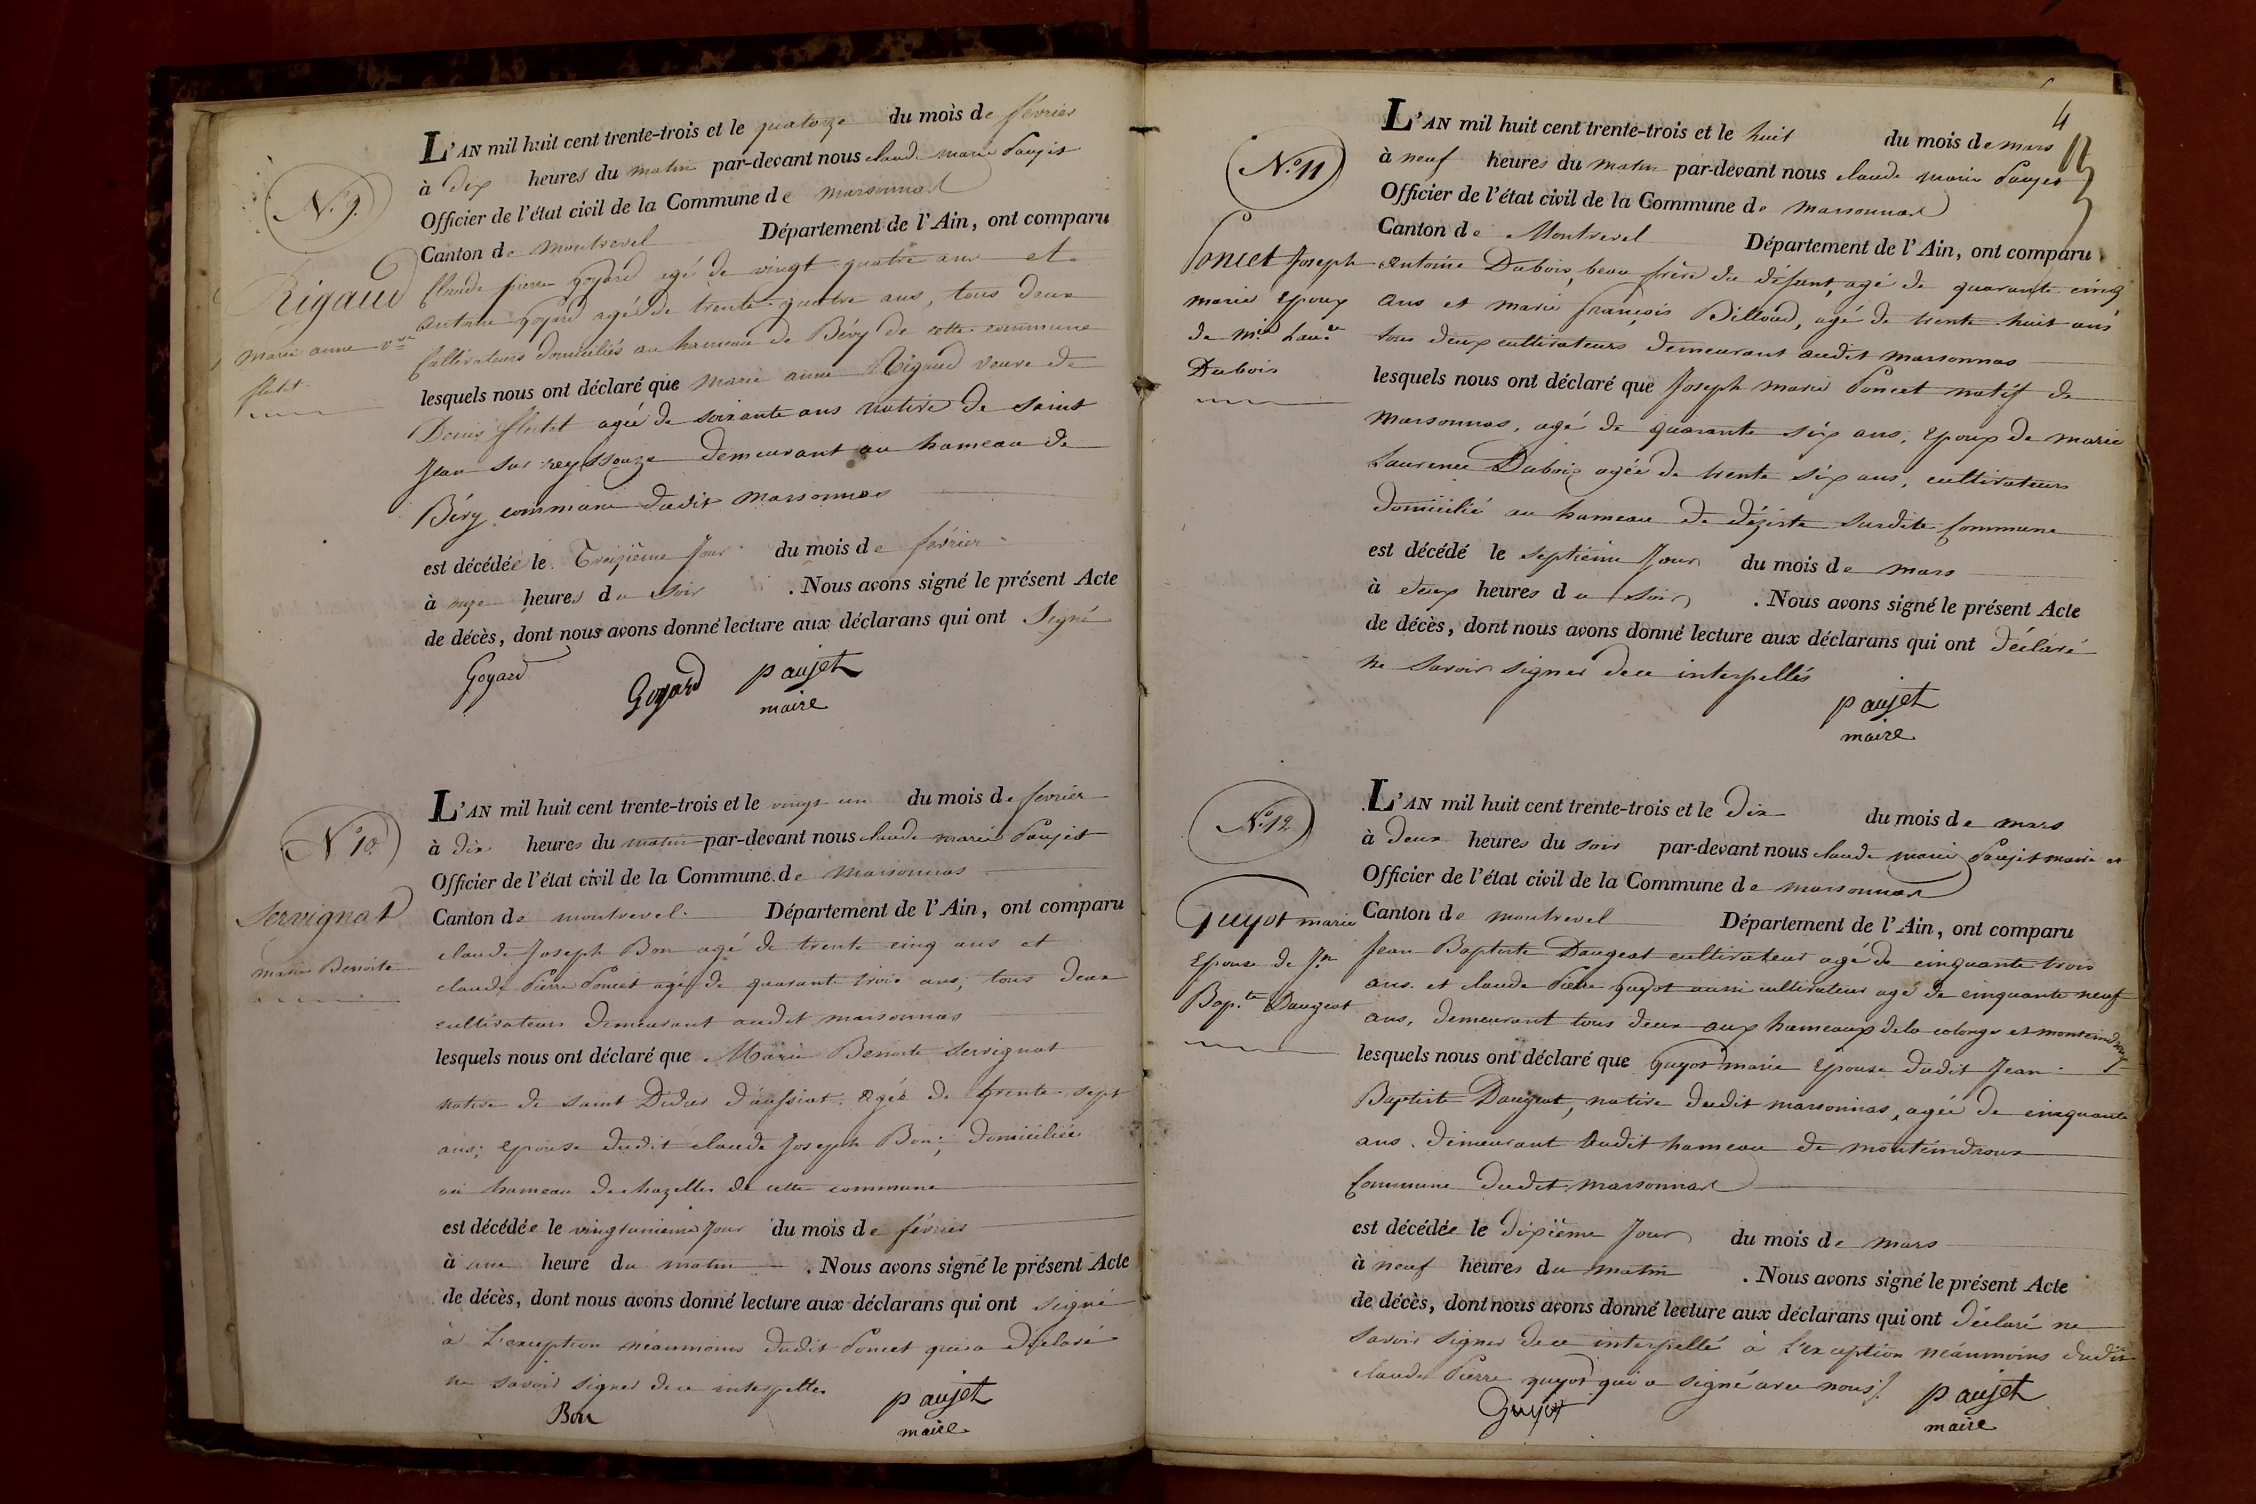 N° 9.
Rigaud
marie anne v.ve
flutet
L'AN mil huit cent trente-trois et le quatorze du mois de février
à dix heures du matin par-devant nous claude marie Paujet
Officier de l'état civil de la Commune de marsonnas
Canton de montrevel Département de l'Ain, ont comparu
Claude pierre goyard agé de vingt quatre ans et
antoine goyard agé de trente quatre ans, tous deux
Cultivateurs domiciliés au hameau de Béry de cette commune
lesquels nous ont déclaré que marie anne Rigaud veuve de
Denis flutet agée de soixante ans native de saint
Jean sur reyssouze demeurant au hameau de
Béry commune dudit marsonnas
est décédée le Treizième Jour du mois de février
à onze heures du soir . Nous avons signé le présent Acte
de décès, dont nous avons donné lecture aux déclarans qui ont Signé
Goyard Goyard paujet
maire
N° 10
Servignat
marie Benoite
L'AN mil huit cent trente-trois et le vingt un du mois de février
à dix heures du matin par-devant nous claude marie Paujet
Officier de l'état civil de la Commune de marsonnas
Canton de montrevel Département de l'Ain, ont comparu
claude Joseph Bon agé de trente cinq ans et
claude Pierre Poncet agé de quarante trois ans, tous deux
cultivateurs demeurant audit marsonnas
lesquels nous ont déclaré que Marie Benoite Servignat
native de saint Didier d'aussiat agée de trente sept
ans; epouse dudit claude Joseph Bon; domiciliée
au hameau de chazelles de cette commune
est décédée le vingtunieme Jour du mois de février
à une heure du matin . Nous avons signé le présent Acte
de décès, dont nous avons donné lecture aux déclarans qui ont signé
à L'exception néanmoins dudit Poncet qui a déclaré
ne savoir signer de ce interpellé
Bon paujet
maire
4
N° 11
Poncet Joseph
marie Epoux
de M.ie Lau.ce
Dubois
L'AN mil huit cent trente-trois et le huit du mois de mars
à neuf heures du matin par-devant nous claude marie Paujet
Officier de l'état civil de la Commune de marsonnas
Canton de Montrevel Département de l'Ain, ont comparu
antoine Dubois, beau frère du défunt, agé de quarante cinq
ans et marie françois Billoud, agé de trente huit ans
tous deux cultivateurs demeurant audit marsonnas
lesquels nous ont déclaré que Joseph marie Poncet natif de
marsonnas, agé de quarante six ans, Epoux de marie
Laurence Dubois agée de trente six ans, cultivateurs
domicilié au hameau de susdite Commune
est décédé le septième Jour du mois de mars
à deux heures du soir . Nous avons signé le présent Acte
de décès, dont nous avons donné lecture aux déclarans qui ont déclaré
ne savoir signer de ce interpellés
paujet
maire
N° 12
Guyot marie
Epouse de J.n
Bap.te Daugeat
L'AN mil huit cent trente-trois et le Dix du mois de mars
à deux heures du soir par-devant nous claude marie Paujet maire et
Officier de l'état civil de la Commune de marsonnas
Canton de montrevel Département de l'Ain, ont comparu
Jean Baptiste Daugeat cultivateur agé de cinquante trois
ans et claude Pierre guyot aussi cultivateur agé de cinquante neuf
ans, demeurant tous deux aux hameaux de la colonge et
lesquels nous ont déclaré que Guyot marie Epouse dudit Jean
Baptiste Daugeat, native dudit marsonnas, agée de cinquante
ans. demeurant audit hameau de
Commune dudit marsonnas
est décédée le dixième Jour du mois de mars
à neuf heures du matin . Nous avons signé le présent Acte
de décès, dont nous avons donné lecture aux déclarans qui ont déclaré ne
savoir signer de ce interpellé à l'exception néanmoins dudit
claude Pierre guyot qui a signé avec nous
Guyot paujet
maire